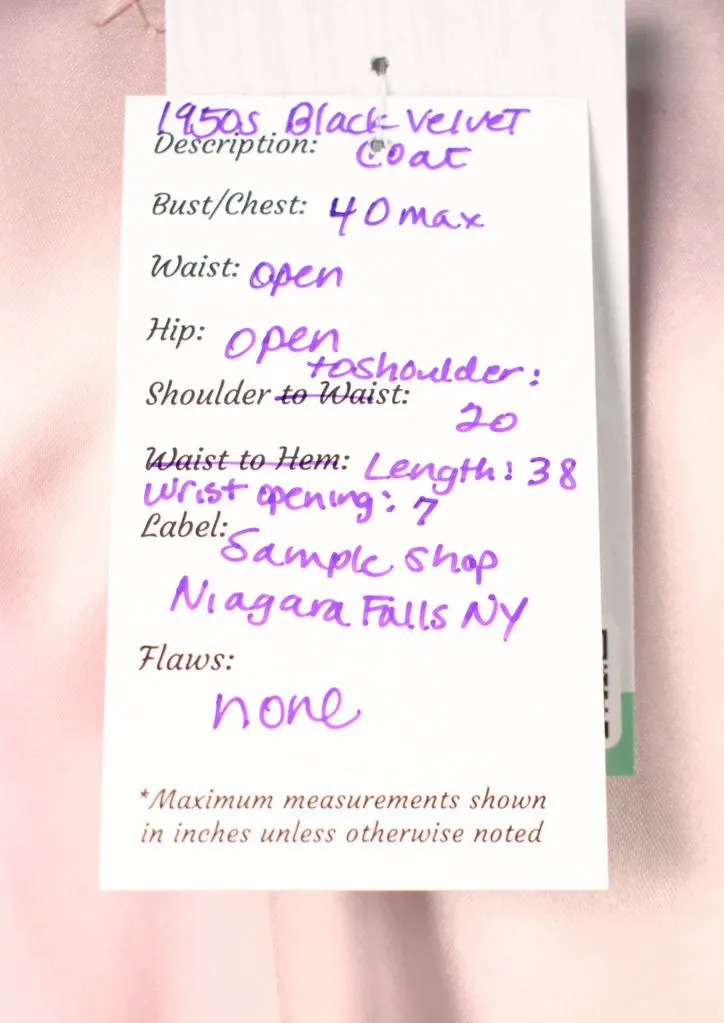 1950s Black Velvet
Description: Coat
Bust/Chest: 40 max
Waist: open
Hip: open
to shoulder:
Shoulder to Waist:
20
Waist to Hem: Length: 38
Wrist opening: 7
Label:
Sample Shop
Niagara Falls NY
Flaws:
none
*Maximum measurements shown
in inches unless otherwise noted